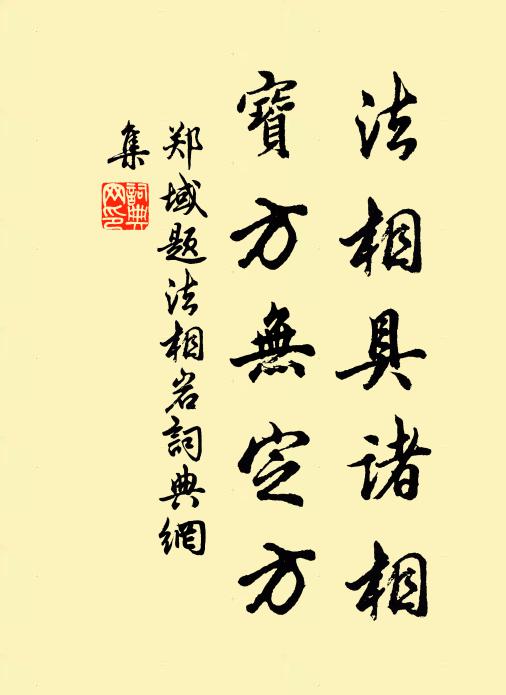 法相具诸相
寶方無定方
郑域题法相岩詞典網
集
詞典
网印